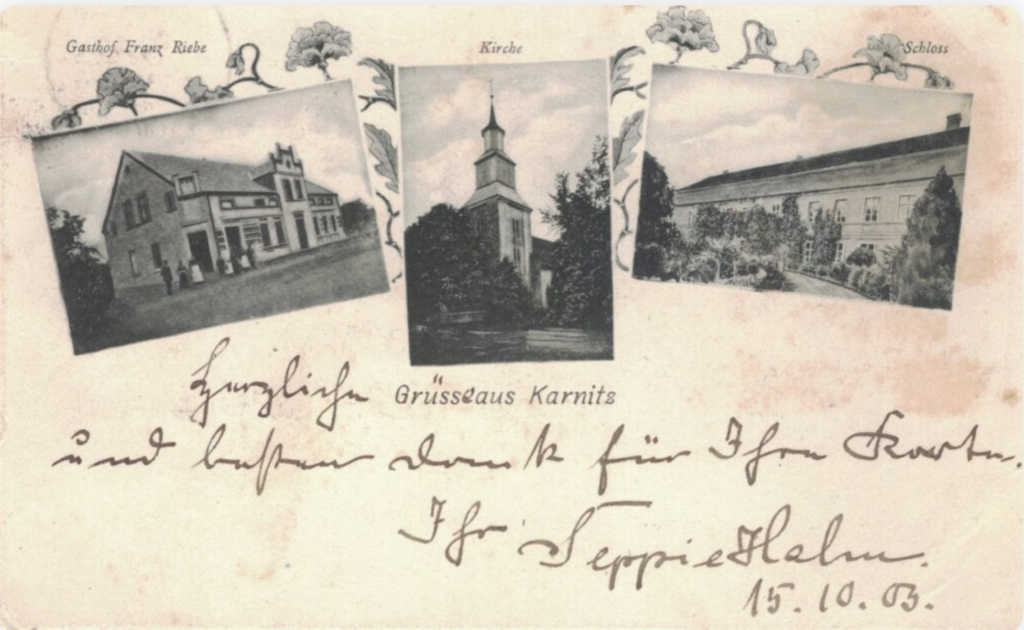 Gasthof Franz Riebe
Kirche
Schloss
Herzliche Grüsse aus Karnitz
und besten dank für Ihre Karte.
Ihr Seppie Halm.
15. 10. 03.